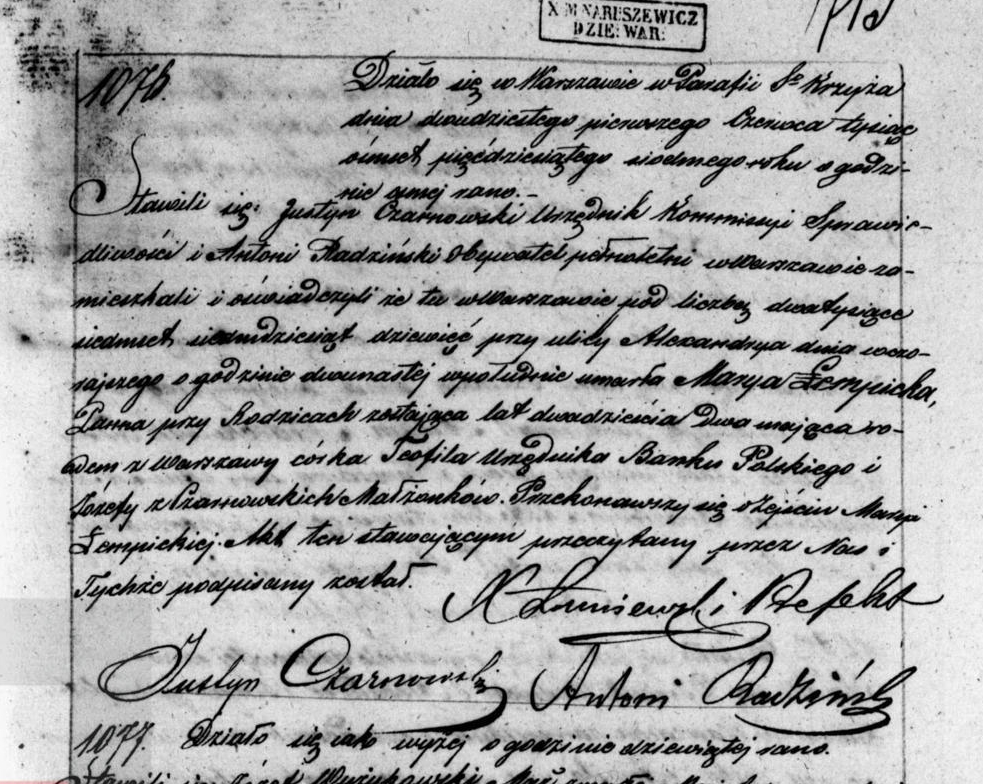 X M NARUSZEWICZ
DZIE: WAR:
1076.
Działo się w Warszawie w Parafii Sº Krzyża
dnia dwudziestego pierwszego Czerwca tysiąc
ośmset pięćdziesiątego siodmego roku o godzi-
nie osmej rano.-
Stawili się: Justyn Czarnowski Urzędnik Kommissyi Sprawie-
dliwości i Antoni Radziński Obywatel pełnoletni w Warszawie za-
mieszkali i oświadczyli że tu w Warszawie pod liczbą dwatysiące
siedmset siedmdziesiąt dziewięć przy ulicy Alexandrya dnia wczo-
rajszego o godzinie dwunastej wpołudnie umarła Marya Łempicka,
Panna przy Rodzicach zostająca lat dwadzieścia Dwa mająca ro-
dem z Warszawy córka Teofila Urzędnika Banku Polskiego i
Józefy z Czarnowskich Małżonków. Przekonawszy się o zejściu Maryi
Łempickiej. Akt ten stawającym przeczytany przez Nas i
Tychże podpisany został.
Prefekt
Justyn Czarnowski Antoni Radziński
1077. Działo się iako wyżej o godzinie dziewiątej rano.
Stawili się